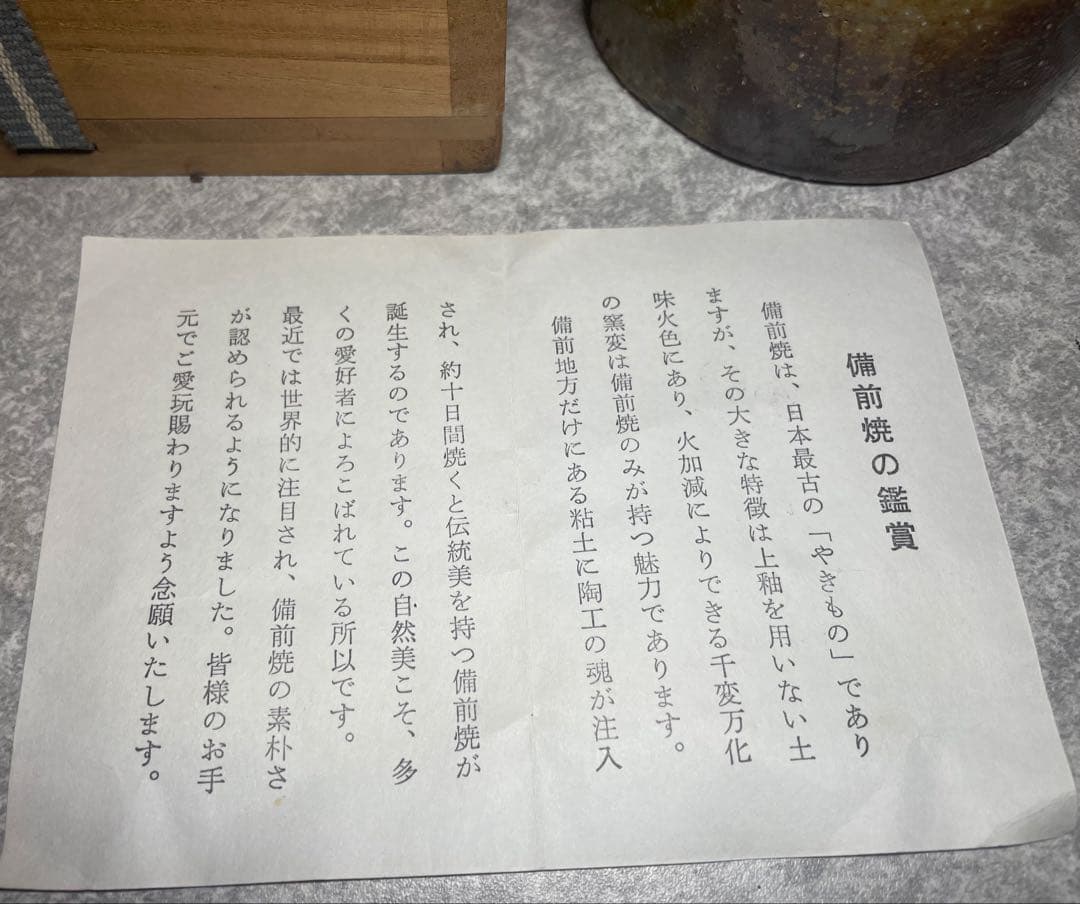 備前焼の鑑賞
備前焼は、日本最古の「やきもの」であり
ますが、その大きな特徴は上釉を用いない土
味火色にあり、火加減によりできる千変万化
の窯変は備前焼のみが持つ魅力であります。
備前地方だけにある粘土に陶工の魂が注入
され、約十日間焼くと伝統美を持つ備前焼が
誕生するのであります。この自然美こそ、多
くの愛好者によろこばれている所以です。
最近では世界的に注目され、備前焼の素朴さ
が認められるようになりました。皆様のお手
元でご愛玩賜わりますよう念願いたします。